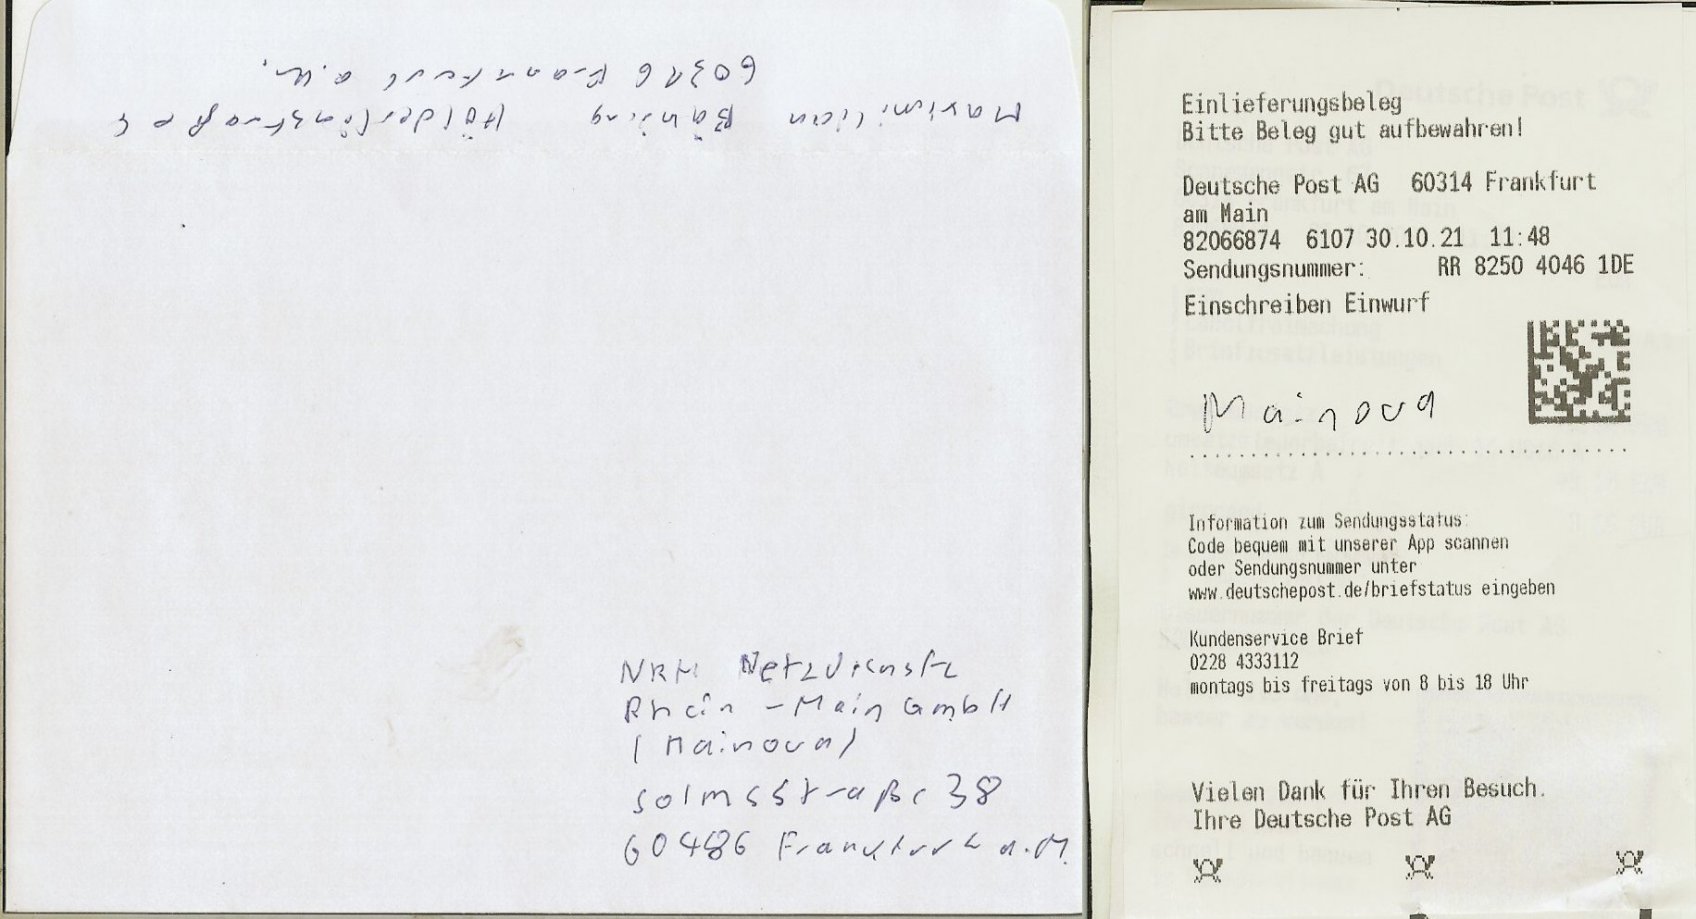 Maximilian Bähring Hölderlinstraße 4
60316 Frankfurt a.M.
NRM Netzdienste
Rhein-Main GmbH
(Mainova)
Solmsstraße 38
60486 Frankfurt a.M.
Einlieferungsbeleg
Bitte Beleg gut aufbewahren!
Deutsche Post AG 60314 Frankfurt
am Main
82066874 6107 30.10.21 11:48
Sendungsnummer: RR 8250 4046 1DE
Einschreiben Einwurf
Mainova
Information zum Sendungsstatus:
Code bequem mit unserer App scannen
oder Sendungsnummer unter
www.deutschepost.de/briefstatus eingeben
Kundenservice Brief
0228 4333112
montags bis freitags von 8 bis 18 Uhr
Vielen Dank für Ihren Besuch.
Ihre Deutsche Post AG